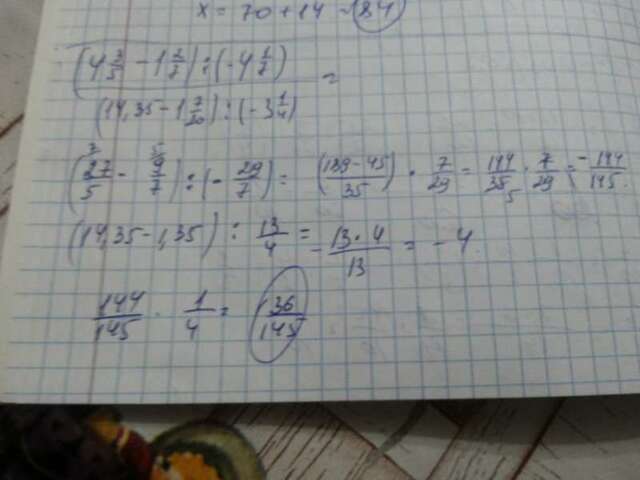 x = 70 + 14 = 84
(4 2/5 - 1 2/7) : (-4 1/7)
(14,35 - 1 7/20) : (-3 1/4) =
(27/5 - 9/7) : (- 29/7) = (189-45/35) · 7/29 = 144/35 · 7/29 = -144/145.
(14,35 - 1,35) : 13/4 = - 13·4/13 = -4.
144/145 · 1/4 = 36/145